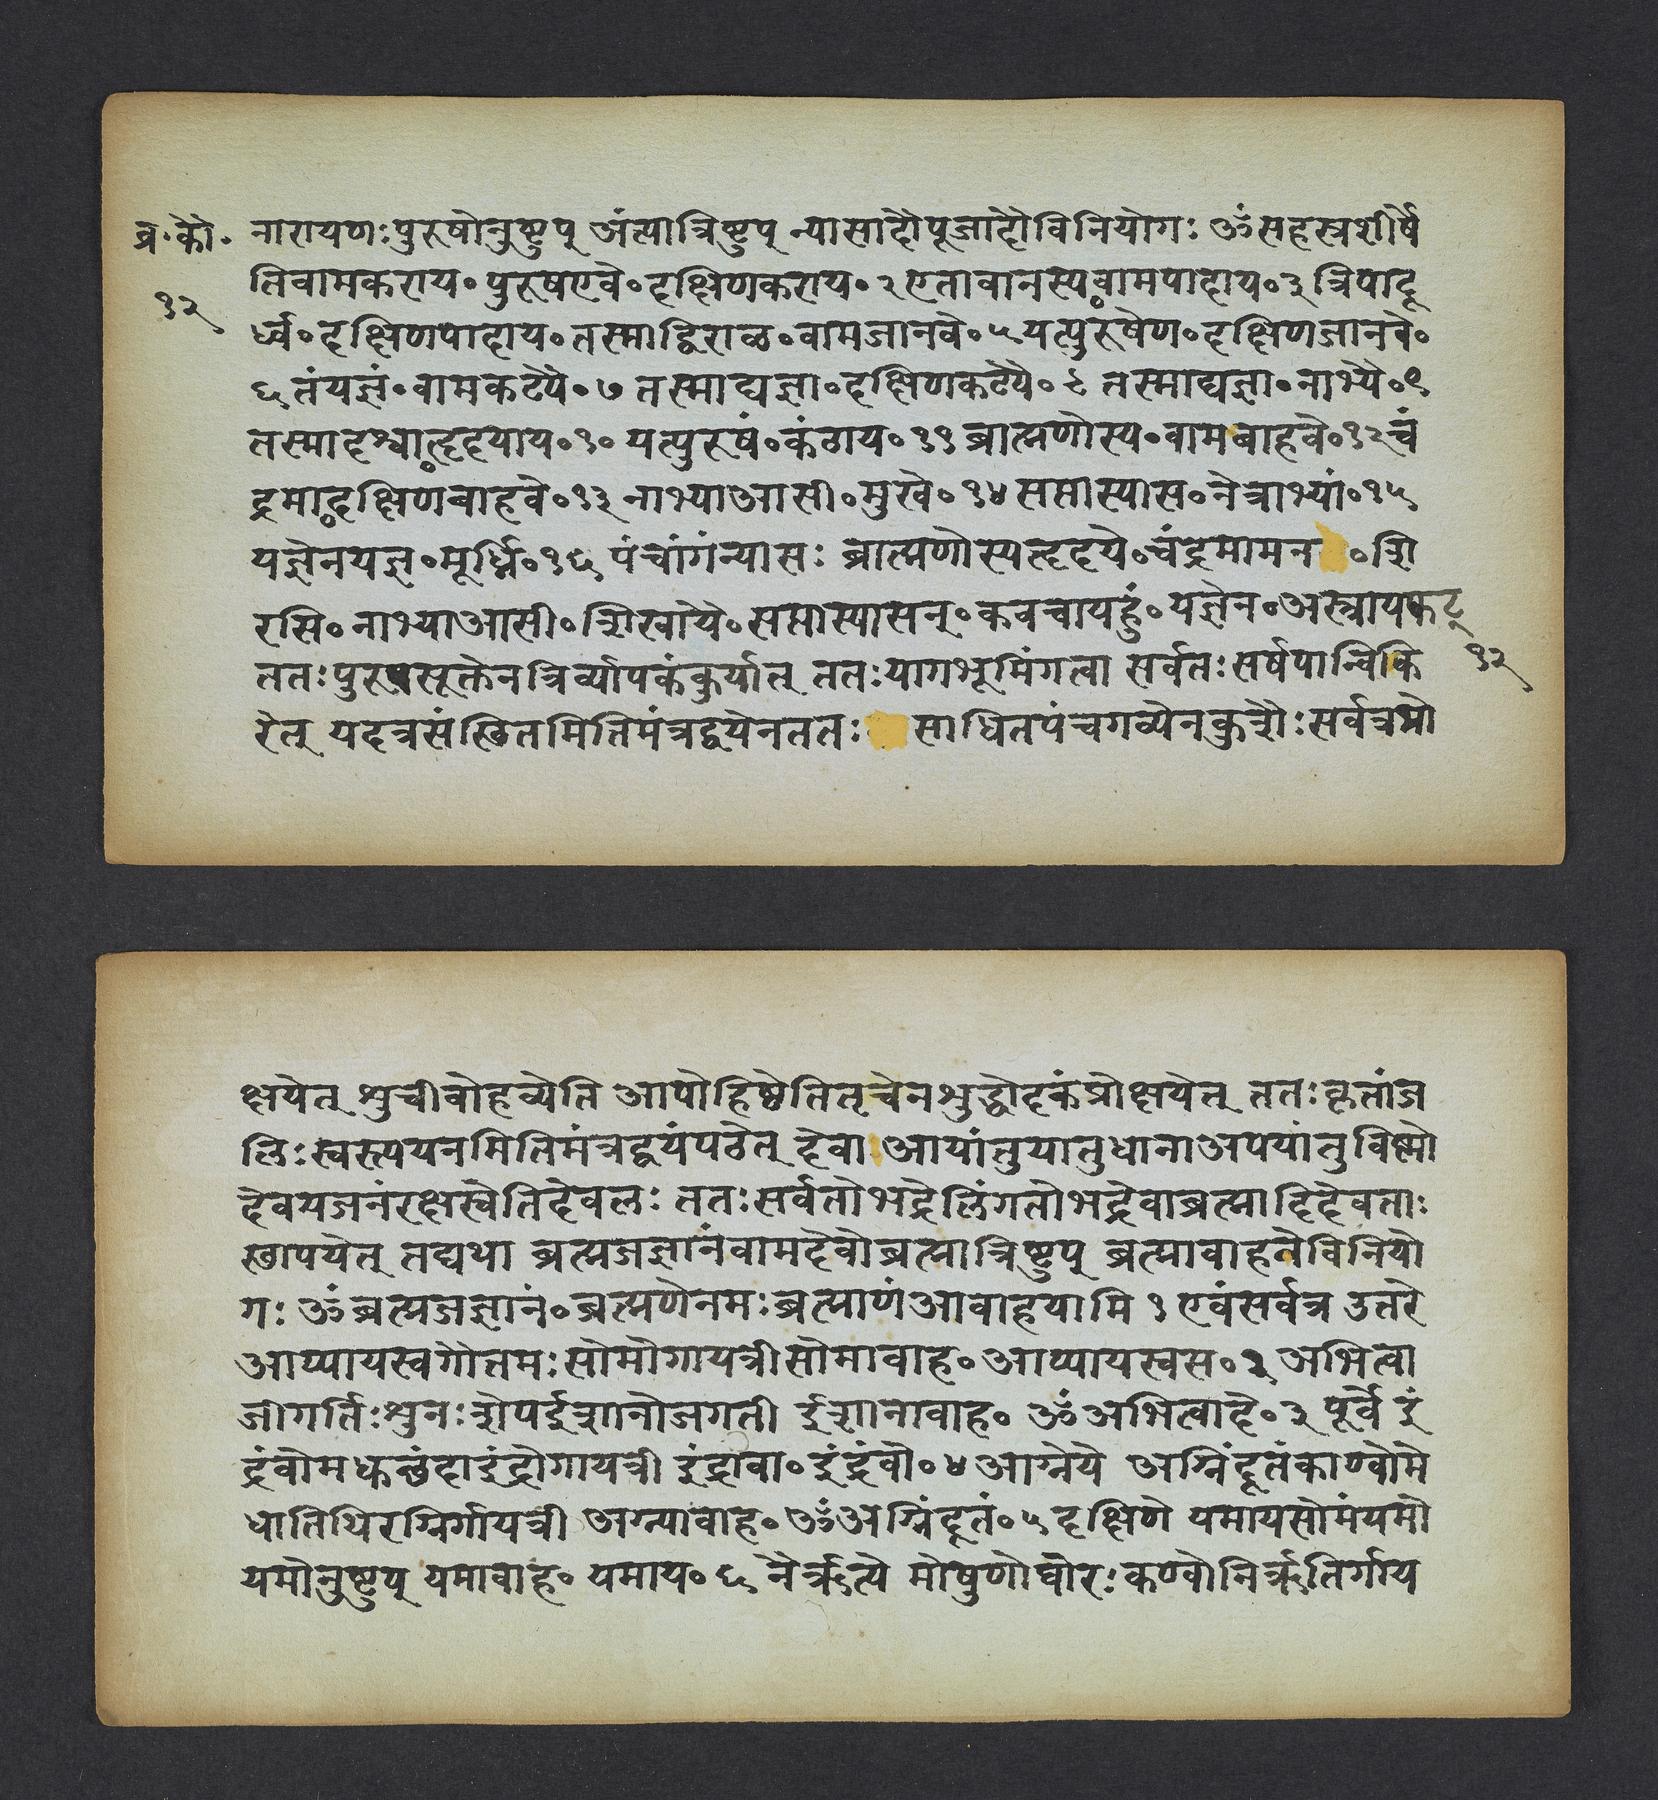 व्र.कौ. नारायणः पुरुषोनुष्टुप् अंत्यात्रिष्टुप् न्यासादौपूजादौविनियोगः ॐसहस्रशीर्षे
१२
तिवामकराय० पुरुषएवे० दक्षिणकराय० २ एतावानस्य०वामपादाय० ३ त्रिपादू
र्ध्व० दक्षिणपादाय० तस्माद्विराळ० वामजानवे० ५ यत्पुरुषेण० दक्षिणजानवे०
६ तंयज्ञं० वामकट्यै० ७ तस्माद्यज्ञा० दक्षिणकट्यै० ८ तस्माद्यज्ञा० नाभ्यै० ९
तस्मादश्वा०हृदयाय० १० यत्पुरुषं० कंठाय० ११ ब्राह्मणोस्य० वामबाहवे० १२ चं
द्रमा०दक्षिणबाहवे० १३ नाभ्याआसी० मुखे० १४ सप्तास्यास० नेत्राभ्यां० १५
यज्ञेनयज्ञ० मूर्ध्नि० १६ पंचांगंन्यासः ब्राह्मणोस्यहृदये० चंद्रमामन ० शि
रसि० नाभ्याआसी० शिखायै० सप्तास्यासन्० कवचायहुं० यज्ञेन० अस्त्रायफट्
ततः पुरुषसूक्तेनत्रिर्व्यापकंकुर्यात् ततः यागभूमिंगत्वा सर्वतः सर्षपान्विकि
१२
रेत् यदत्रसंस्थितमितिमंत्रद्वयेनततः साधितपंचगव्येनकुशैः सर्वत्रप्रो
क्षयेत् शुचीवोहव्येति आपोहिष्ठेतितृचेनशुद्धोदकंप्रोक्षयेत् ततः कृतांज
लिः स्वस्त्ययनमितिमंत्रद्वयंपठेत् देवा आयांतुयातुधानाअपयांतुविष्णो
देवयजनंरक्षस्वेतिदेवलः ततः सर्वतोभद्रेलिंगतोभद्रेवाब्रह्मादिदेवताः
स्थापयेत् तद्यथा ब्रह्मजज्ञानंवामदेवोब्रह्मात्रिष्टुप् ब्रह्मावाहनेविनियो
गः ॐब्रह्मजज्ञानं० ब्रह्मणेनमः ब्रह्माणंआवाहयामि १ एवंसर्वत्र उतरे
आप्यायस्वगौतमः सोमोगायत्रीसोमावाह० आप्यायस्वस० २ अभित्वा
जीगर्तिः शुनः शेपईशानोजगती ईशानावाह० ॐअभित्वादे० ३ पूर्वे इं
द्रंवोमधुच्छंदाइंद्रोगायत्री इंद्रावा० इंद्रंवो० ४ आग्नेये अग्निंदूतंकाण्वोमे
धातिथिरग्निर्गायत्री अग्न्यावाह० ॐअग्निंदूतं० ५ दक्षिणे यमायसोमंयमो
यमोनुष्टुप् यमावाह० यमाय० ६ नैर्ऋत्ये मोषुणोघोरः कण्वोनिर्ऋतिर्गाय